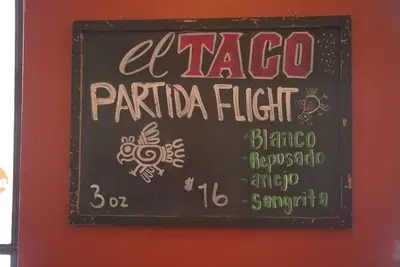 el TACO
PARTIDA FLIGHT
- Blanco
- Reposado
- añejo
- Sangrita
3 oz $16